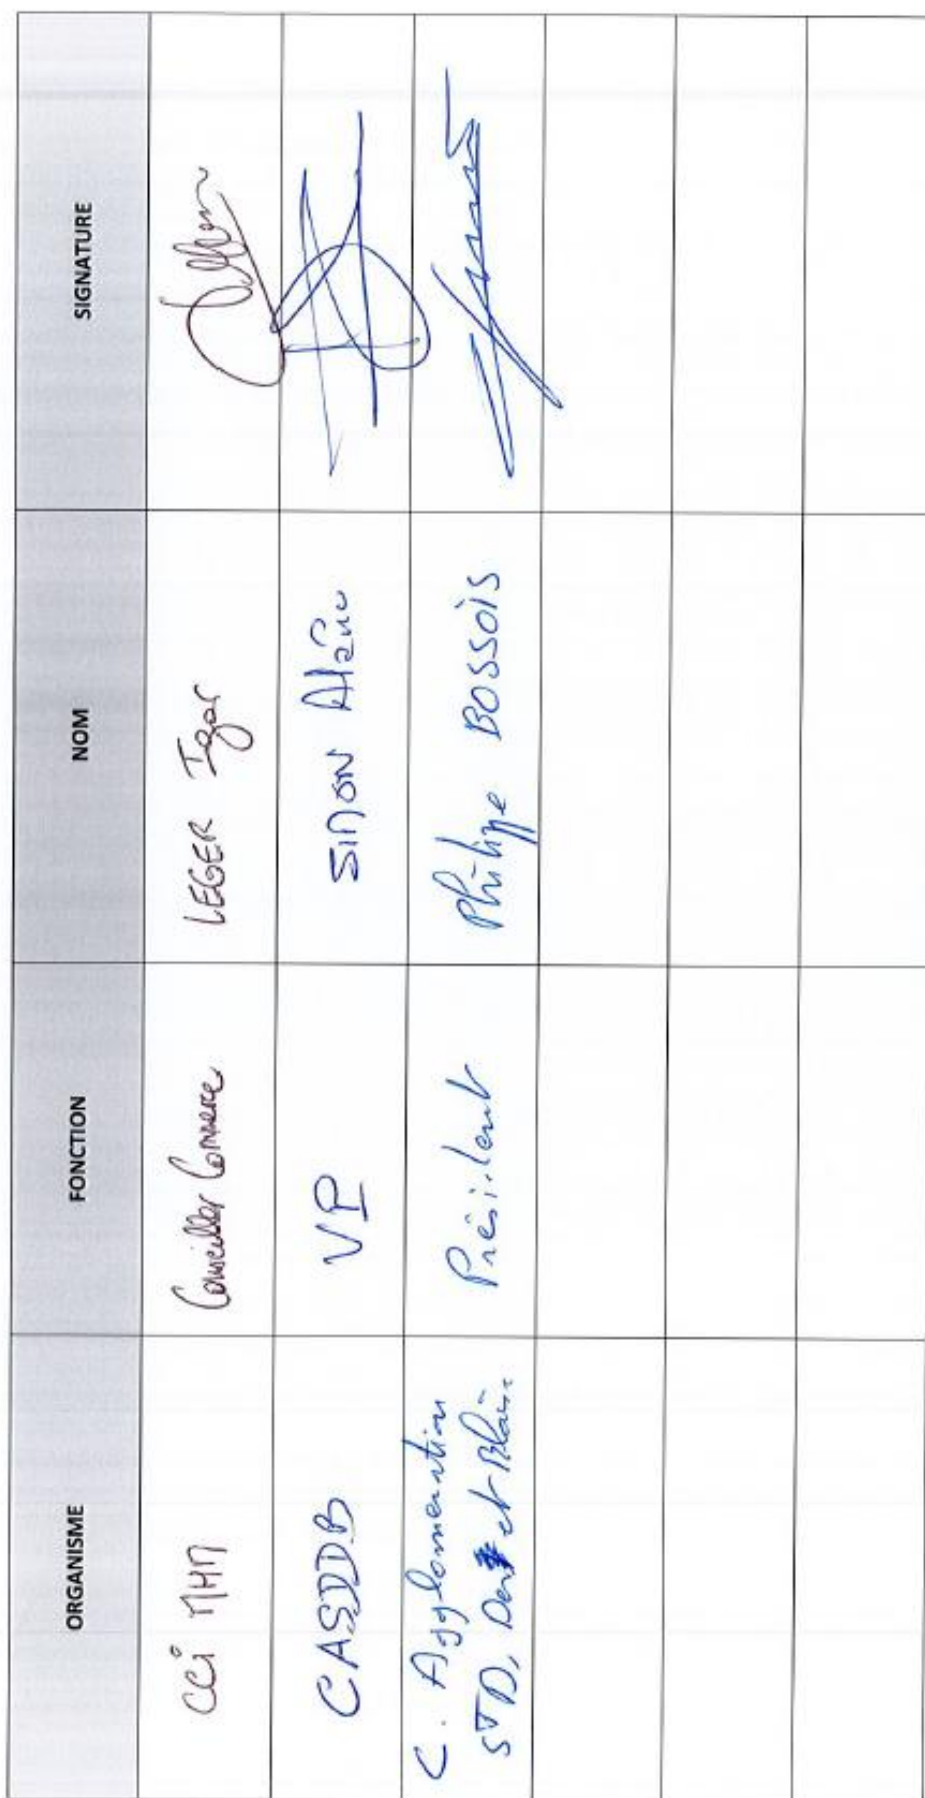 ORGANISME FONCTION NOM SIGNATURE
CCi MHM Conseiller Commerce LEGER Igor
CASDDB VP SIMON Alain
C. Agglomération
STD, Der et Blaise Président Philippe BOSSOIS